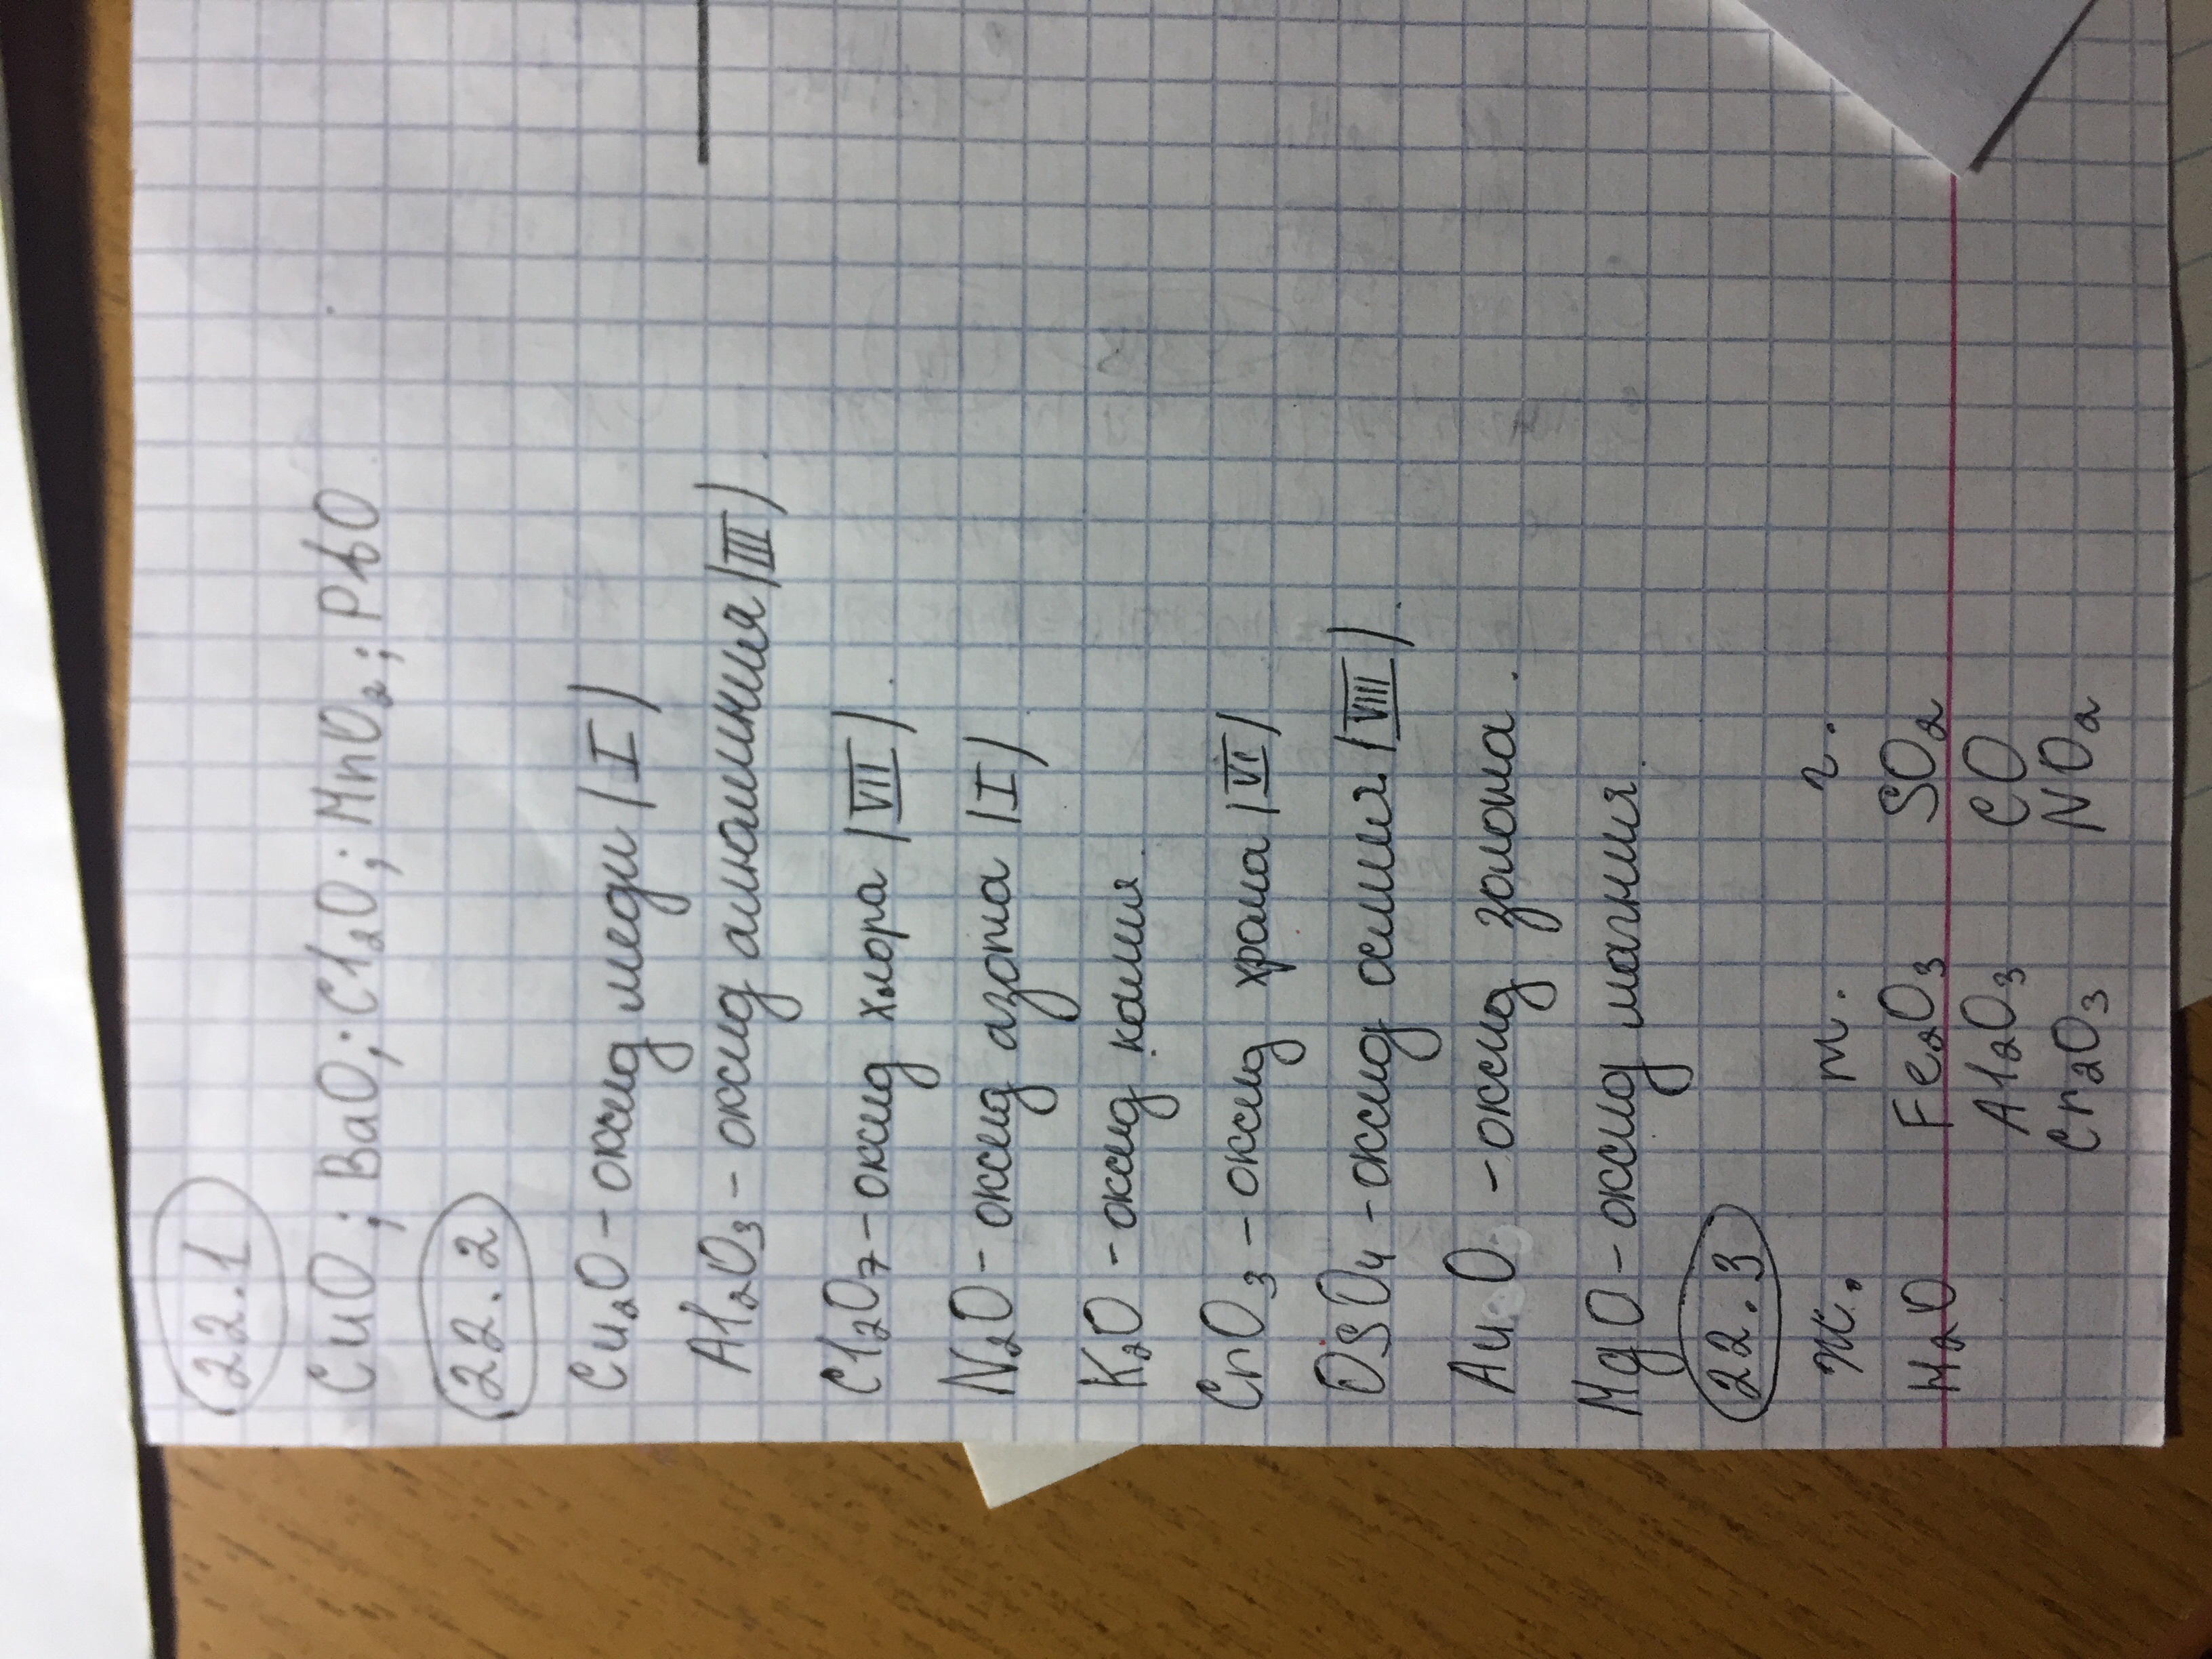 22.1
CuO; BaO; Cl₂O; MnO₂; PbO
22.2
Cu₂O - оксид меди (I)
Al₂O₃ - оксид алюминия (III).
Cl₂O₇ - оксид хлора (VII).
N₂O - оксид азота (I)
K₂O - оксид калия.
CrO₃ - оксид хрома (VI)
OsO₄ - оксид осмия (VIII).
AuO - оксид золота.
MgO - оксид магния.
22.3
ж. т. г.
H₂O Fe₂O₃ SO₂
Al₂O₃ CO
Cr₂O₃ NO₂